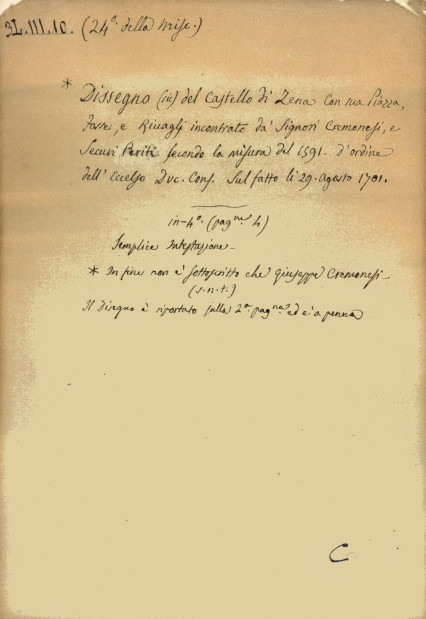 3L.III.10. (24ª della Misc.)
* Dissegno (sic) del Castello di Zena con sua Piazza,
Fosse, e Rivagli incontrato da' Signori Cremonesi, e
Securi Periti secondo la misura del 1591. d'ordine
dell' Eccelso Duc. Cons. Sul fatto li 29. Agosto 1701.
in-4º. (pagne 4)
Semplice Intestazione-
* In fine non è sottoscritto che Giuseppe Cremonesi-
(s.n.t.)
Il disegno è riportato sulla 2ª. pagna. ed è a penna
C